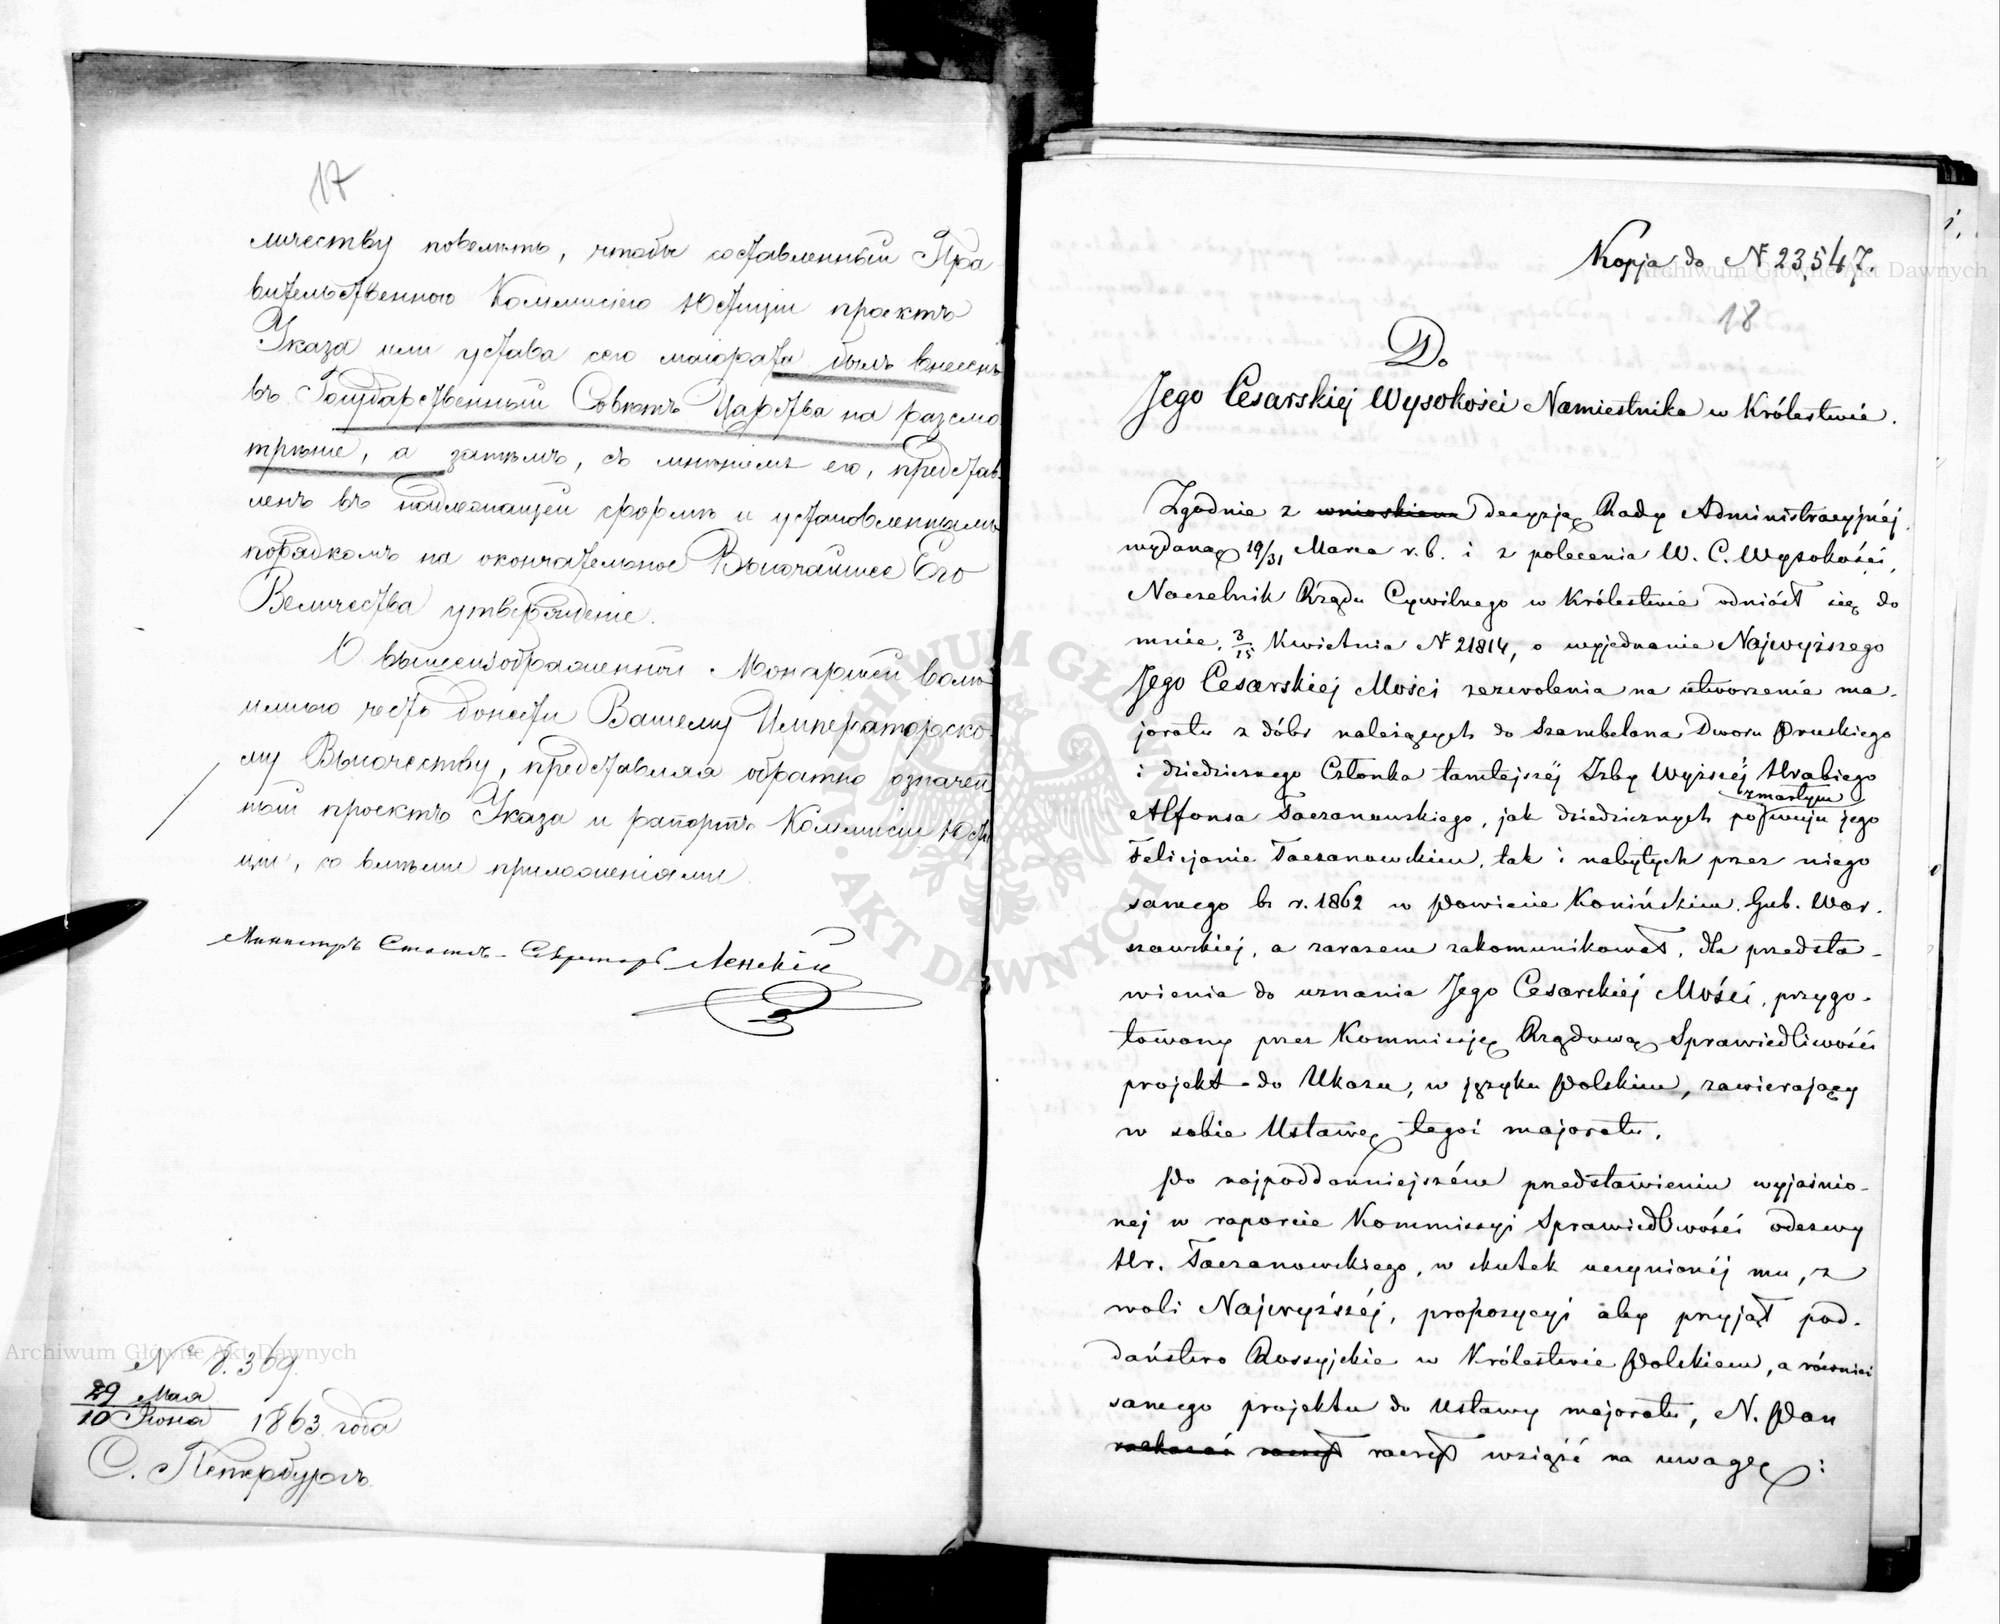 17
личеству повелѣть, чтобы составленный Пра
вительственною Коммисіею Юстиціи проектъ
Указа или устава сего маіората былъ внесенъ
въ Государственный Совѣтъ Царства на разсмо
трѣніе, а затѣмъ, съ мнѣніемъ его, представ
ленъ въ надлежащей формѣ и установленнымъ
порядкомъ на окончательное Высочайшее Его
Величества утвержденіе.
О вышеизображенной Монаршей волѣ
имѣю честь донести Вашему Императорско
му Высочеству, представляя обратно означен
ный проектъ Указа и рапортъ Коммисіи Юсти
ціи, со всѣми приложеніями.
Министръ Статсъ-Секретарь Ленскій
№ 8.369.
29 Мая
10 Іюня 1863 года
С. Петербургъ.
Kopja do № 23,547.
18
Do
Jego Cesarskiéj Wysokości Namiestnika w Królestwie.
Zgodnie z wnioskiem decyzją Rady Administracyjnéj
wydaną 19/31 Marca r. b. i z polecenia W. C. Wysokości,
Naczelnik Rządu Cywilnego w Królestwie odniósł się do
mnie, 3/15 Kwietnia № 21814, o wyjednanie Najwyższego
Jego Cesarskiej Mości zezwolenia na utworzenie ma-
joratu z dóbr należących do Szambelana Dworu Pruskiego
i dziedzicznego Członka tamtejszéj Izby Wyższéj Hrabiego
zmarłym
Alfonsa Taczanowskiego, jak dziedzicznych po stryju jego
Felicjanie Taczanowskim, tak i nabytych przez niego
samego b. r. 1862 w Powiecie Konińskim Gub. War-
szawskiej, a zarazem zakomunikował, dla przedsta-
wienia do uznania Jego Cesarskiéj Mości, przygo-
towany przez Kommissję Rządową Sprawiedliwości
projekt do Ukazu, w języku Polskim, zawierający
w sobie Ustawę tegoż majoratu.
Po najpoddanniejszém przedstawieniu wyjaśnio-
nej w raporcie Kommissyi Sprawiedliwości odezwy
Hr. Taczanowskiego, w skutek uczynionéj mu, z
woli Najwyższéj, propozycyi aby przyjął pod-
daństwo Rossyjskie w Królestwie Polskiem, a również
samego projektu do Ustawy majoratu, N. Pan
rozkazać raczył raczył wziąść na uwagę:
Archiwum Główne Akt Dawnych
Archiwum Główne Akt Dawnych
ARCHIWUM GŁÓWNE AKT DAWNYCH